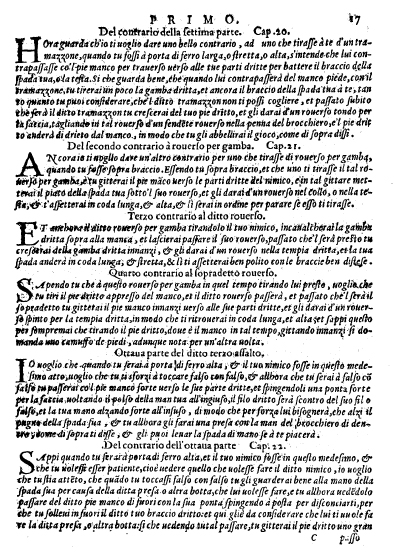 PRIMO. 17
Del contrario della settima parte. Cap. 20.
HOra guarda ch'io ti uoglio dare uno bello contrario, ad uno che tirasse à te d'un tra-
mazzone, quando tu fossi à porta di ferro larga, o stretta, o alta, s'intende che lui con-
trapassasse col piè manco per trauerso uerso alle tue parti dritte per battere il braccio della
spada tua, o la testa. Si che guarda bene, che quando lui contrapasserà del manco piede, con il
tramazzone, tu tirerai un poco la gamba dritta, et ancora il braccio della spada tua à te, tan
to quanto tu puoi considerare, che'l dritto tramazzon non ti possi cogliere, et passato subito
che serà il ditto tramazzon tu crescerai del tuo piè dritto, et gli darai d'un rouerso tondo per
la faccia, tagliando in tal rouerso d'un fendẽte rouerso nella penna del brocchiero, el piè drit-
to anderà di drieto dal manco, in modo che tu gli abbellirai il gioco, come di sopra dissi.
Del secondo contrario à rouerso per gamba. Cap. 21.
ANcora io ti uoglio dare un'altro contrario per uno che tirasse di rouerso per gamba,
quando tu fosse sopra braccio. Essendo tu sopra braccio, et che uno ti tirasse il tal ro-
uerso per gamba, tu gitterai il piè mãco uerso le parti dritte del nimico, et in tal gittare met-
terai il piato della spada tua sotto'l suo rouerso, et gli darai d'un rouerso nel collo, o nella te-
sta, et t'assetterai in coda lunga, & alta, & lì serai in ordine per parare se esso ti tirasse.
Terzo contrario al ditto rouerso.
ET anchora il ditto rouerso per gamba tirandolo il tuo nimico, incauallcherai la gamba
dritta sopra alla manca, et lascierai passare il suo rouerso, passato che'l serà presto tu
crescerai della gamba dritta innanzi, & gli darai d'un rouerso nella tempia dritta, et la tua
spada anderà in coda lunga, & stretta, & lì ti assetterai ben polito con le braccie ben distese.
Quarto contrario al sopradetto rouerso.
SApendo tu che à questo rouerso per gamba in quel tempo tirando lui presto, uoglio che
tu tiri il piè dritto appresso del manco, et il ditto rouerso passerà, et passato che'l serà il so-
pradetto tu gitterai il piè manco uerso alle sue parti dritte, et gli darai d'un rouer-
so spinto per la tempia dritta, in modo che ti ritrouerai in coda lunga, et alta, et sappi questo
per sempre mai che tirando il piè dritto, doue è il manco in tal tempo, gittando innanzi si do-
manda uno camuffo de piedi, adunque nota per un'altra uolta.
Ottaua parte del ditto terzo assalto.
IO uoglio che quando tu serai à porta di ferro alta, & il tuo nimico fosse in questo mede-
simo atto, uoglio che tu ti sforzi à toccare falso con falso, & allhora che tu serai à falso cõ
falso tu passerai col piè manco forte uerso le sue parte dritte, et spingendoli una ponta forte
per la faccia, uoltando il polso della man tua all'ingiuso, il filo dritto serà scontro del suo fil o
falso, & la tua mano alzando forte all'insuso, di modo che per forza lui bisognerà, che alzi il
pugno della spada sua, & tu allhora gli farai una presa con la man del brocchiero di den-
tro, come di sopra ti disse, & gli puoi leuar la spada di mano se à te piacerà.
Del contrario dell'ottaua parte Cap. 22.
SAppi quando tu serai à porta di ferro alta, et il tuo nimico fosse in questo medesimo, &
che tu uolesse esser patiente, cioè uedere quello che uolesse fare il ditto nimico, io uoglio
che tu stia attẽto, che quãdo tu toccassi falso con falso tu gli guarderai bene alla mano della
spada sua per causa della ditta presa o altra botta, che lui uolesse fare, et tu allhora uedẽdolo
passare del ditto piè manco di fuori con la sua ponta spingendo à posta per disconciarti, per
che tu solleui in fuori il ditto tuo braccio dritto, et quì già considerando che lui ti uuole fa
re la ditta presa, o altra botta: sì che uedendo tutal passare, tu gitterai il piè dritto uno gran
C passo